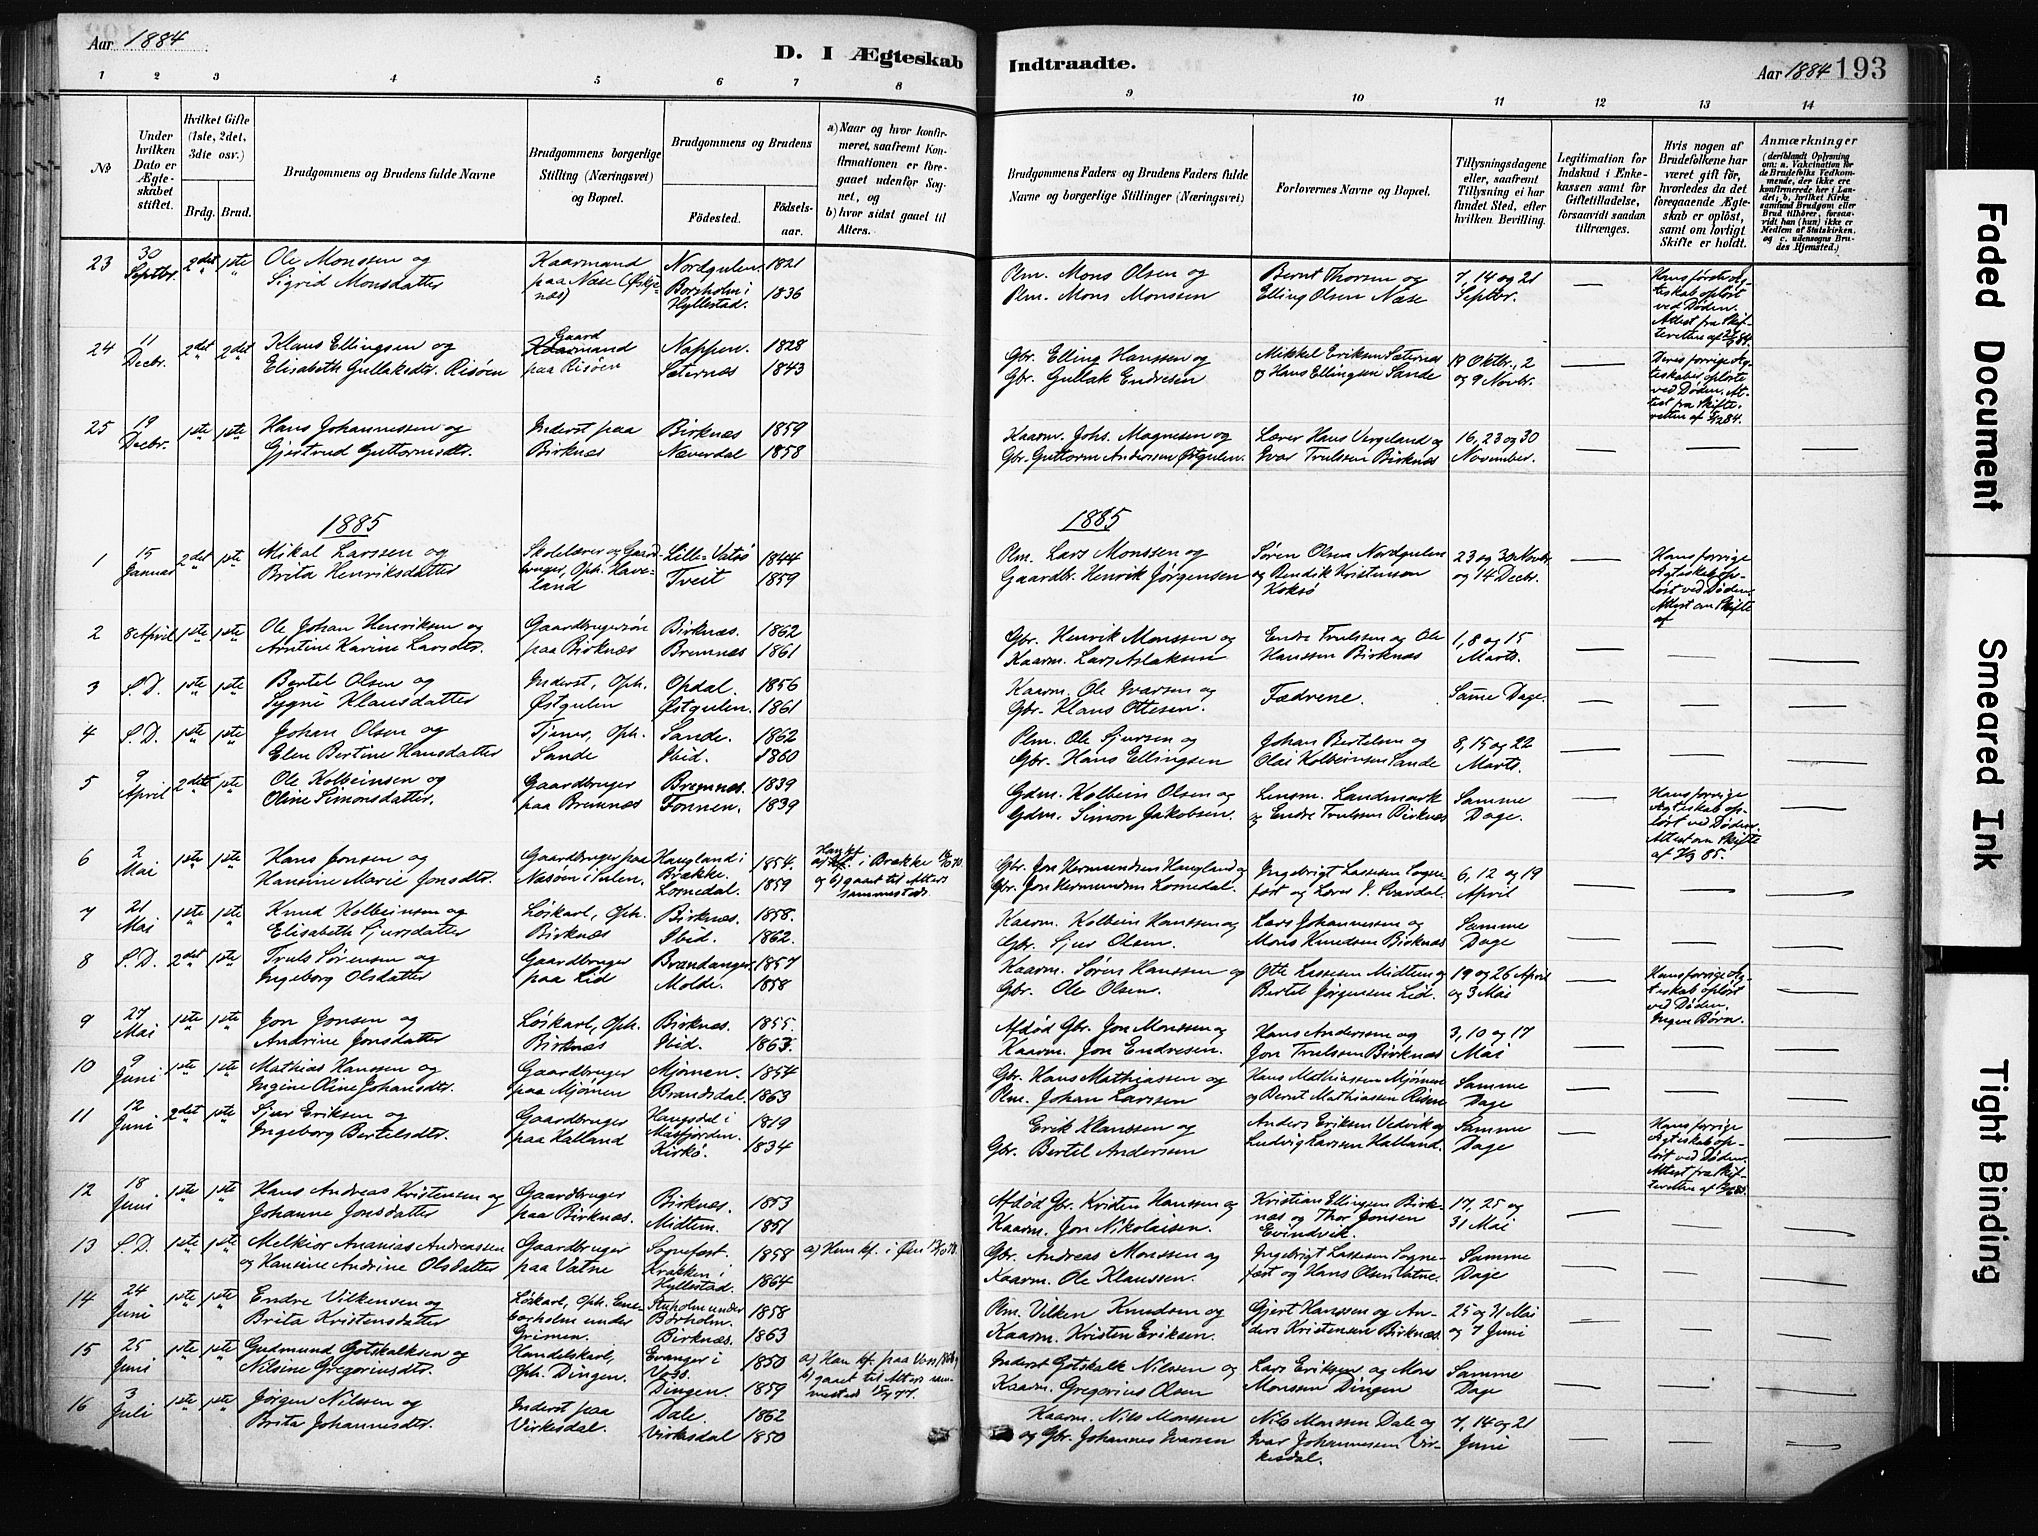 Aar 1884
D. I Ægteskab
Indtraadte.
Aar 1884 193
1 2 3 4 5 6 7 8 9 10 11 12 13 14
No
Under hvilken Dato er Ægteskabet stiftet.
Hvilket Gifte (1ste, 2det, 3die osv.)
Brdg. Brud.
Brudgommens og Brudens fulde Navne
Brudgommens borgerlige Stilling (Næringsvei) og Bopæl.
Brudgommens og Brudens
Fødested. Fødselsaar.
a) Naar og hvor konfirmeret, saafremt Konfirmationen er foregaaet udenfor Sognet, og
b) hvor sidst gaaet til Alters.
Brudgommens Faders og Brudens Faders fulde Navne og borgerlige Stillinger (Næringsvei)
Forlovernes Navne og Bopæl.
Tillysningsdagene eller, saafremt Tillysning ei har fundet Sted, efter hvilken Bevilling.
Legitimation for Indskud i Enkekassen samt for Giftetilladelse, forsaavidt saadan tiltrænges.
Hvis nogen af Brudefolkene har været gift før, hvorledes da det foregaaende Ægteskab er opløst, samt om lovligt Skifte er holdt.
Anmærkninger
(deriblandt Oplysning om: a. Vakcination for de Brudefolks Vedkommende, der ikke ere konfirmerede her i Landet; b. hvilket Kirkesamfund Brudgom eller Brud tilhører, forsaavidt han (hun) ikke er Medlem af Statskirken, og c. udensogns Brudes Hjemsted.)
23 30 Septbr. 2det 1ste Ole Monssen og Sigrid Monsdatter Kaarmand paa Næse Nordgulen 1821 Borsholm i Hyllestad. 1836 Plm. Mons Olsen og Plm. Mons Monssen Bernt Thorsen og Elling Olsen Næse 7, 14 og 21 Septbr. — Hans første Ægteskab opløst ved Døden. Attest fra Skifteretten af
24 11 Decbr. 2det 2det Klaus Ellingsen og Elisabeth Gullaksdtr. Risøen Gaardmand paa Risøen Nappen. 1828 Sæternæs 1843 Gbr. Elling Hanssen og Gbr. Gullak Endresen Mikkel Eriksen Sæternæs og Hans Ellingsen Sande 19 Oktbr., 2 og 9 Novbr. — Deres forrige Ægteskaber opløste ved Døden. Attest fra Skifteretten af
25 19 Decbr. 1ste 1ste Hans Johannessen og Gjertrud Guttormsdtr. Inderst paa Birknæs Birknæs 1859 Næverdal 1858 Kaarm. Johs. Magnesen og Gbr. Guttorm Andersen Østgulen. Lærer Hans Vergeland og Ivar Trulssen Birknæs 16, 23 og 30 November. — — —
1885
1885
1 15 Januar 2det 1ste Mikal Larssen og Brita Henriksdatter Skolelærer og Gaardbruger, Oph. Haveland Lille-Vatsø 1844 Tveit 1859 Plm. Lars Monssen og Gaardbr. Henrik Jørgensen Søren Olsen Nordgulen og Bendik Kristensen Koksø 23 og 30 Novbr. og 14 Decbr. — Hans forrige Ægteskab opløst ved Døden. Attest om Skifte af
2 8 April 1ste 1ste Ole Johan Henriksen og Arntine Karine Larsdtr. Gaardbrugersøn paa Birknæs Birknæs. 1862 Bremnæs 1861 Gbr. Henrik Monssen og Kaarm. Lars Aslaksen Endre Trulssen og Ole Hanssen Birknæs 1, 8 og 15 Marts. — — —
3 S.D. 1ste 1ste Bertel Olsen og Sygni Klausdatter Inderst, Oph. Østgulen Opdal. 1856 Østgulen. 1861 Kaarm. Ole Ivarsen og Gbr. Klaus Ottesen. Fædrene. Same Dage. — — —
4 S.D. 1ste 1ste Johan Olsen og Elen Bertine Hansdatter Tjener, Oph. Sande Sande. 1862 Ibid. 1860 Plm. Ole Sjursen og Gbr. Hans Ellingsen Johan Bertelsen og Olai Kolbeinsen Sande 8, 15 og 22 Marts. — — —
5 9 April 2det 1ste Ole Kolbeinsen og Oline Simonsdatter. Gaardbruger paa Bremnæs Bremnæs. 1839 Fonnen. 1839 Gdm. Kolbein Olsen og Gdm. Simon Jakobsen. Lensm. Landmark og Endre Trulssen Birknæs Samme Dage. — Hans forrige Ægteskab opløst ved Døden. Attest om Skifte af —
6 2 Mai 1ste 1ste Hans Jonsen og Hansine Marie Jonsdtr. Gaardbruger paa Næsøen i Sulen. Haugland i Brække. 1854. Lomedal. 1859 i Brække og b) gaaet til Alters sammesteds. Gbr. Jon Hermundsen Haugland og Gbr. Jon Hermundsen Lomedal. Ingebrigt Lassesen Sognefæst og 6, 12 og 19 April — — —
7 21 Mai 1ste 1ste Knud Kolbeinsen og Elisabeth Sjursdatter Løskarl, Oph. Birknæs Birknæs. 1858. Ibid. 1862. Kaarm. Kolbein Hanssen og Gbr. Sjur Olsen. Lars Johannessen og Mons Knudsen Birknæs Samme Dage — — —
8 S.D. 2det 1ste Truls Sørensen og Ingeborg Olsdatter Gaardbruger paa Lid Brandanger. 1857 Molde. 1858 Kaarm. Søren Hanssen og Gbr. Ole Olsen. Otte Lassesen Midtun og Bertel Jørgensen Lid. 19 og 26 April og 3 Mai — Hans forrige Ægteskab opløst ved Døden. Ingen Børn. —
9 27 Mai 1ste 1ste Jon Jonsen og Andrine Jonsdatter Løskarl, Oph. Birknæs Birknæs. 1855. Ibid. 1863. Afdød Gbr. Jon Monssen og Kaarm. Jon Endresen. Hans Andersen og Jon Trulssen Birknæs 3, 10 og 17 Mai — — —
10 9 Juni 1ste 1ste Mathias Hanssen og Ingine Oline Johansdtr. Gaardbruger paa Mjømen Mjømen. 1854 Brandsdal. 1863 Gbr. Hans Mathiassen og Plm. Johan Larssen Hans Mathiassen Mjømen og Bernt Mathiassen Samme Dage — — —
11 12 Juni 2det 1ste Sjur Eriksen og Ingeborg Bertelsdtr. Gaardbruger paa Halland Haugsdal i Masfjorden. 1819 Kirkø. 1834 Erik Klaussen og Gbr. Bertel Andersen Anders Eriksen Vedvik og Ludvig Larsen Halland. Samme Dage — Hans forrige Ægteskab opløst ved Døden. Attest fra Skifteretten af —
12 18 Juni 1ste 1ste Hans Andreas Kristensen og Johanne Jonsdatter Gaardbruger paa Birknæs. Birknæs. 1853 Midtun. 1851 Afdød Gbr. Kristen Hanssen og Kaarm. Jon Nikolaisen. Kristian Ellingsen Birknæs og Thor Jonsen Evindvik. 17, 25 og 31 Mai — — —
13 S.D. 1ste 1ste Melkior Ananias Andreassen og Hansine Andrine Olsdatter Gaardbruger paa Vatne Sognefæst. 1858 Krakken i Hyllestad. 1864 a) Hun kf. i Øen Gbr. Andreas Monssen og Kaarm. Ole Klaussen. Ingebrigt Lassesen Sognefæst og Hans Olsen Vatne. Samme Dage — — —
14 24 Juni 1ste 1ste Endre Vilkensen og Brita Kristensdatter Løskarl, Oph. Enebærholm under Grimen. under Børholm. 1858 Birknæs. 1863 Plm. Vilken Knudsen og Kaarm. Kristen Eriksen. Gjert Hanssen og Anders Kristensen Birknæs. 25 og 31 Mai og 7 Juni — — —
15 25 Juni 1ste 1ste Gudmund Gotskalksen og Nilsine Gregoriusdtr. Handelskarl, Oph. Dingen. Evanger i Voss. 1850 Dingen. 1859 a) Han kf. paa Voss b) gaaet til Alters sammested Inderst Gotskalk Nilssen og Kaarm. Gregorius Olsen Lars Eriksen og Mons Monssen Dingen Samme Dage — — —
16 3 Juli 1ste 1ste Jørgen Nilssen og Brita Johannesdtr. Inderst paa Virkesdal. Dale. 1862 Virkesdal 1850 Kaarm. Nils Monssen og Gbr. Johannes Ivarsen Nils Monssen Dale og Ivar Johannessen Virkesdal. 7, 14 og 21 Juni — — —
Faded Document
Smeared Ink
Tight Binding